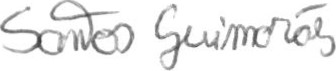 Santos Guimarães